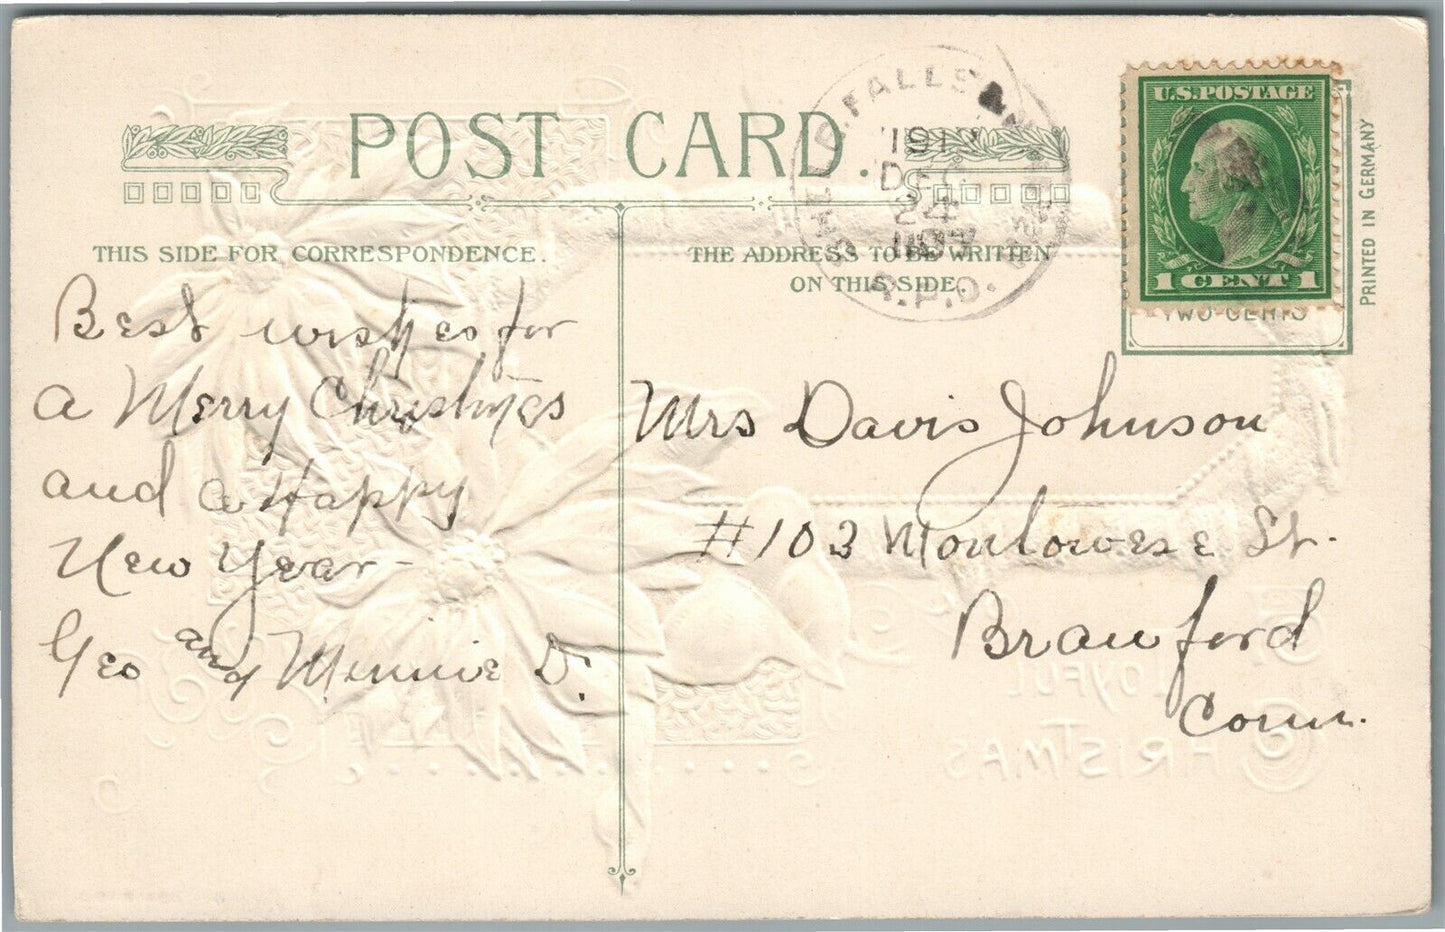 POST CARD.
THIS SIDE FOR CORRESPONDENCE.
THE ADDRESS TO BE WRITTEN
ON THIS SIDE.
FALLS
DEC
24
R.P.O.
U.S. POSTAGE
1 CENT 1
TWO CENTS
PRINTED IN GERMANY
Best wishes for
a Merry Christmas
and a Happy
New Year-
Geo and Minnie D.
Mrs Davis Johnson
#103 Montowese St.
Branford
Conn.
JOYFUL
CHRISTMAS